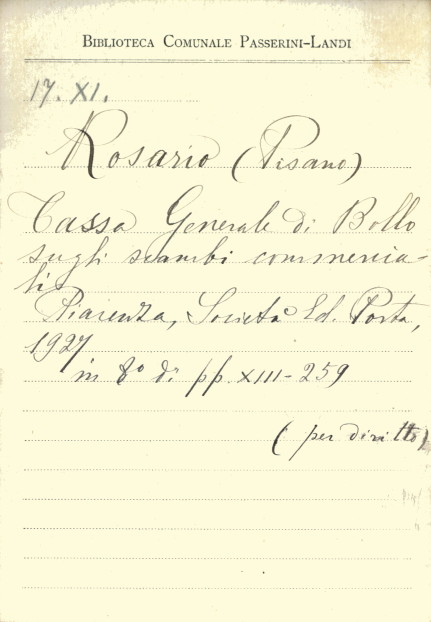 BIBLIOTECA COMUNALE PASSERINI-LANDI
17. XI.
Rosario (Pisano)
Tassa Generale di Bollo
sugli scambi commercia-
li
Piacenza, Società Ed. Porta,
1927
in 8° di pp. XIII-259
(per diritto)